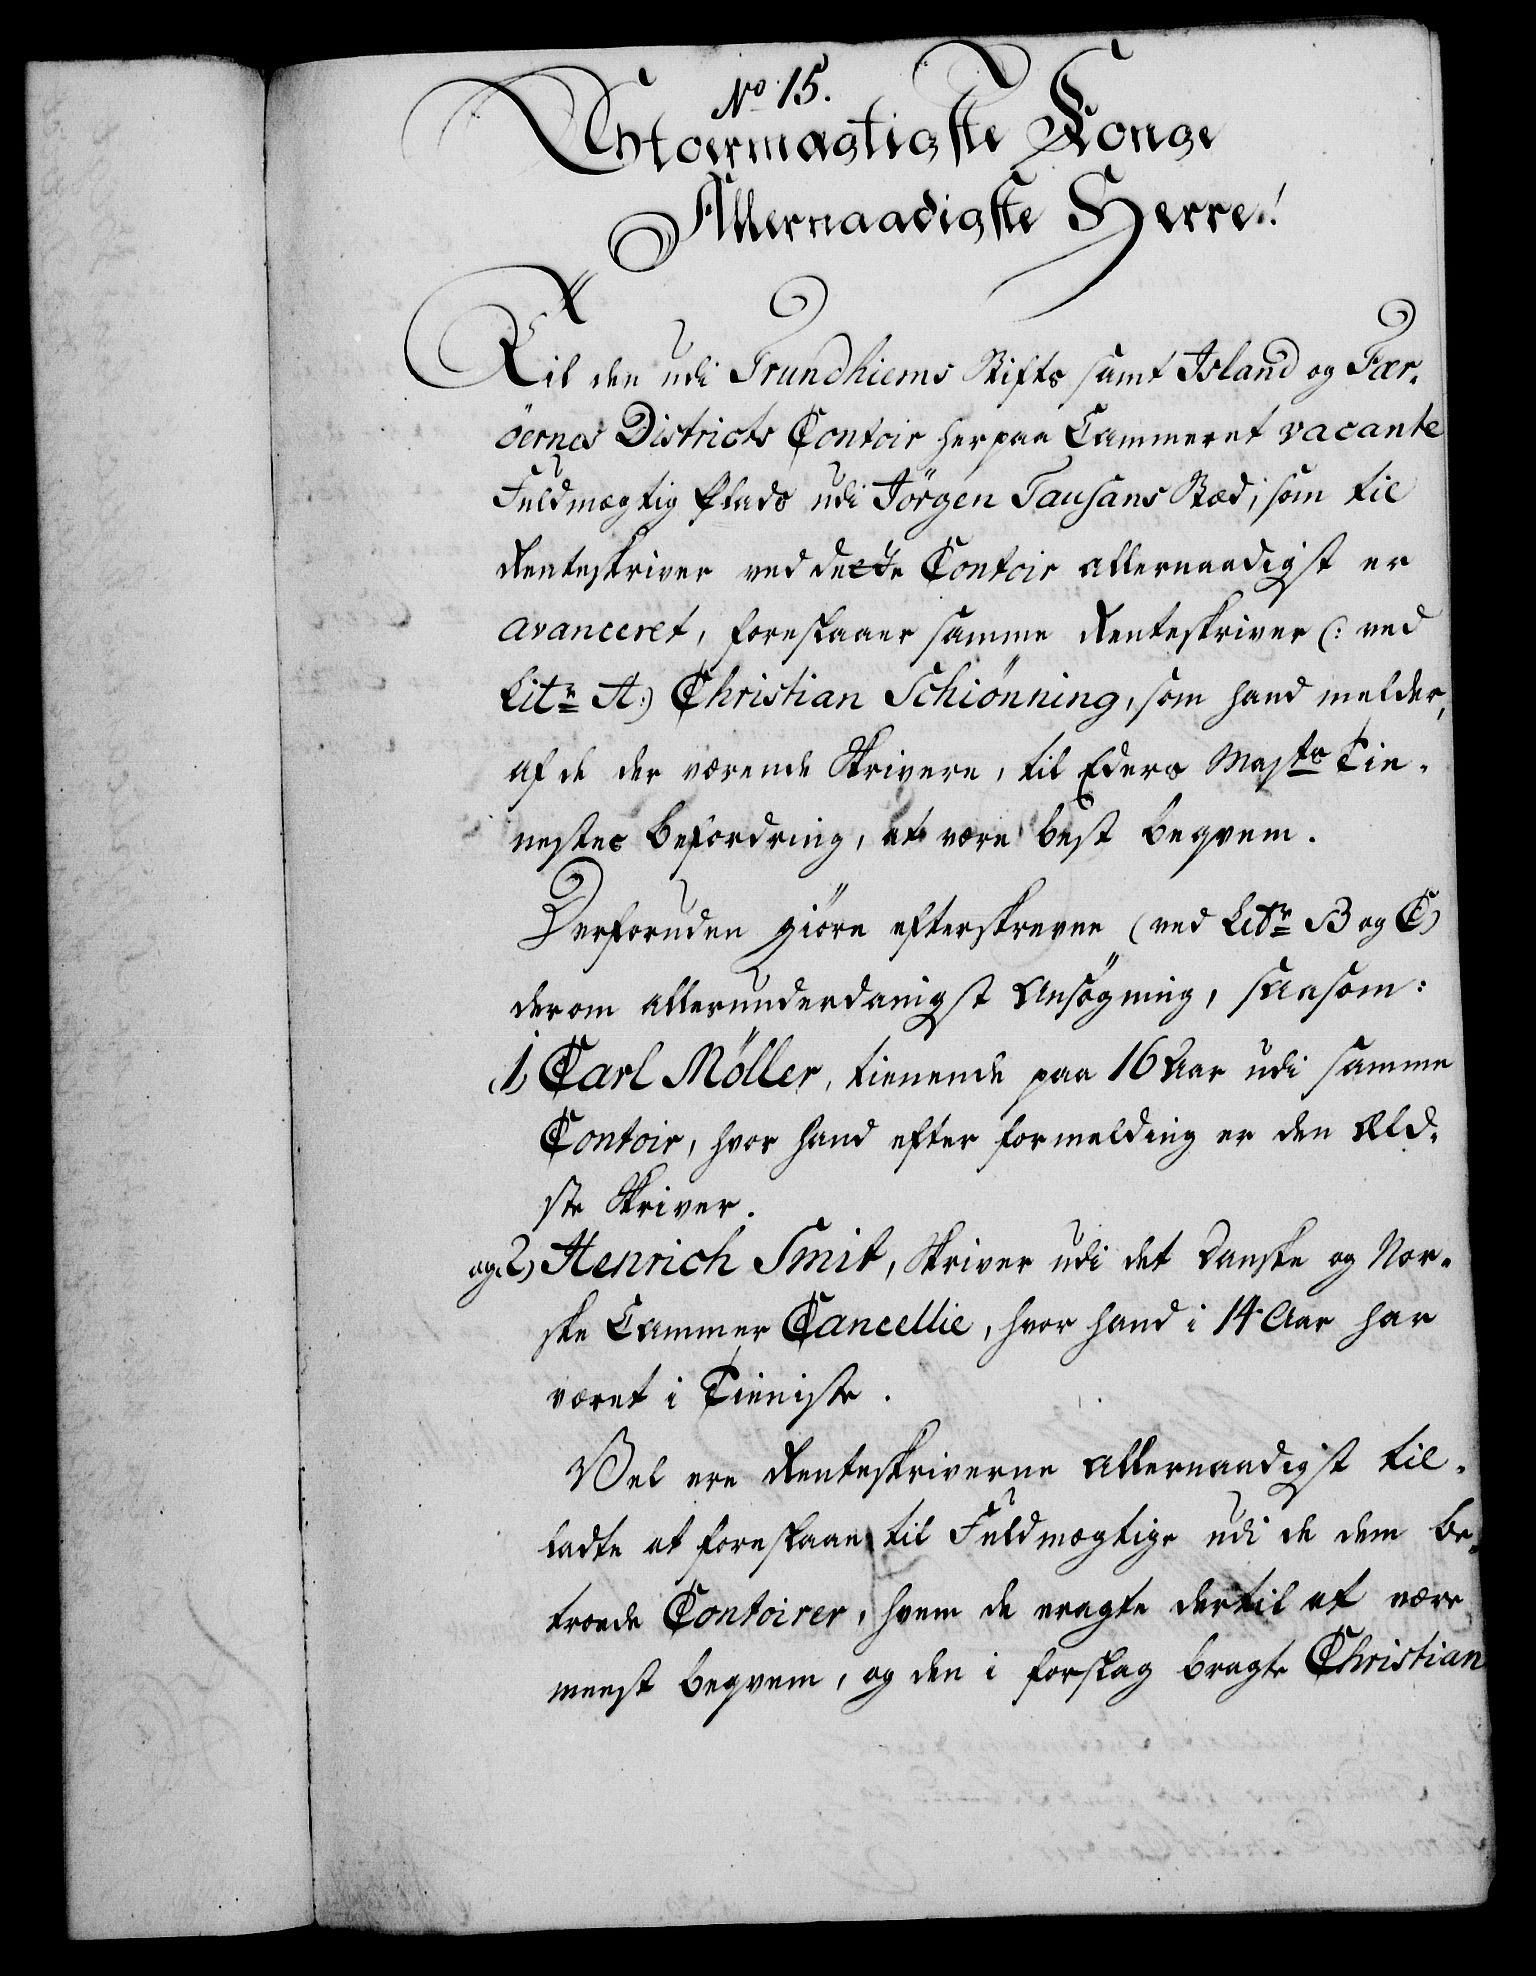 No 15.
Stormægtigste Konge
Allernaadigste Herre!
Til den udi Trundhiems Stifts samt Island og Fær-
öernes Districts Contoir her paa Cammeret vacante
Fuldmægtig Plads udi Jörgen Tausans Stæd, som til
Renteskriver ved dette Contoir allernaadigst er
avanceret, foreslaaer samme Renteskriver (: ved
Litr A:) Christian Schiönning, som hand melder,
af de der værende Skrivere, til Eders Maysts Tie-
nestes befordring, at være best beqvem.
Desforuden giöre efterskrevne (ved Litr B og C)
derom allerunderdanigst Ansögning, saasom:
1) Carl Möller, tienende paa 16 Aar udi samme
Contoir, hvor hand efter formelding er den Æld-
ste Skriver.
og 2) Henrich Smit, Skriver udi det Danske og Nor-
ske Cammer Cancellie, hvor hand i 14 Aar har
været i Tieniste.
Vel ere Renteskriverne allernaadigst til-
ladte at foreslaae til Fuldmægtige udi de dem be-
troede Contoirer, hvem de eragte dertil at være
meest beqvem, og den i forslag bragte Christian